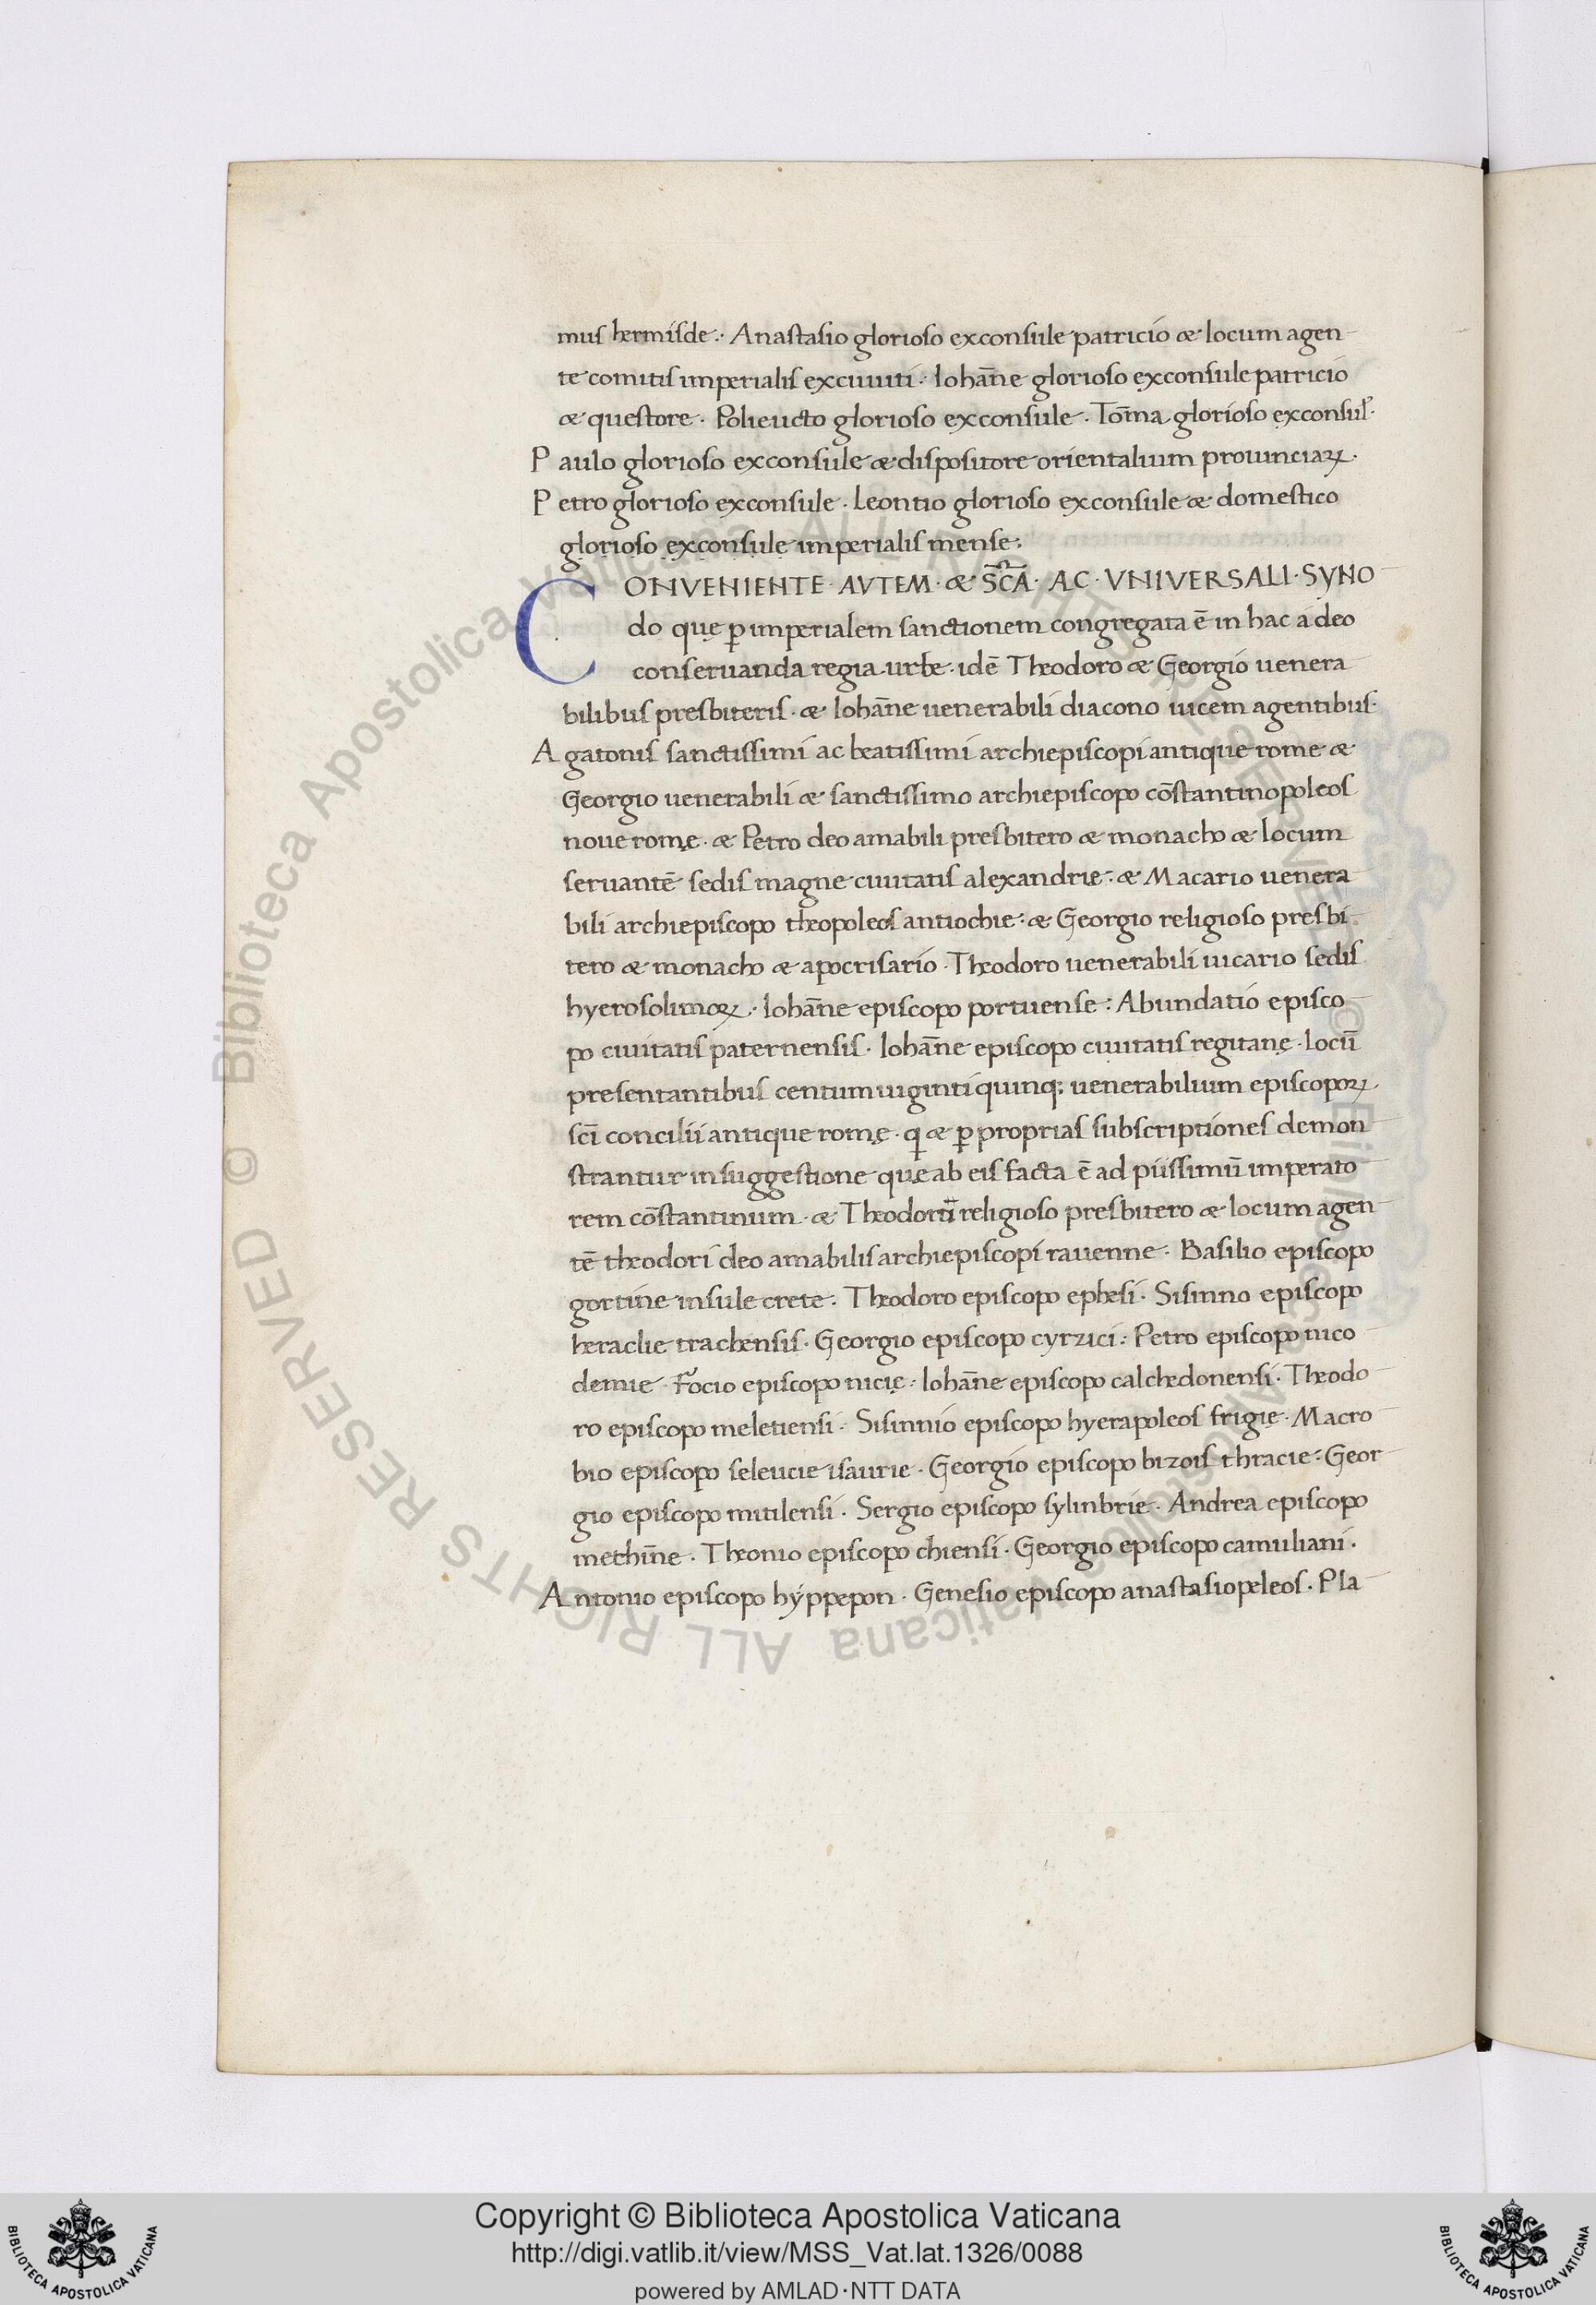 mus hermisde: Anastasio glorioso exconsule patricio æ locum agen
te comitis imperialis excuuiti: Iohāne glorioso exconsule patricio
æ questore. Polieucto glorioso exconsule. Tom̄a glorioso exconsuł.
Paulo glorioso exconsule æ dispositore orientalium prouinciaꝝ.
Petro glorioso exconsule. Leontio glorioso exconsule æ domestico
glorioso exconsule imperialis mense:
CONVENIENTE · AVTEM · æ S̄C̄A · AC · VNIVERSALI · SYNO
do quę ꝑ imperialem sanctionem congregata ē in hac á deo
conseruanda regia urbe. idē Theodoro æ Georgio uenera
bilibus presbiteris. æ Iohāne uenerabili diacono uicem agentibus.
Agatonis sanctissimi ac beatissimi archiepiscopi antique rome æ
Georgio uenerabili æ sanctissimo archiepiscopo cōstantinopoleos
noue romę. æ Petro deo amabili presbitero æ monacho æ locum
seruantē sedis magne ciuitatis alexandrię: æ Macario uenera
bili archiepiscopo theopoleos antiochie: æ Georgio religioso presbi
tero æ monacho æ apocrisario. Theodoro uenerabili uicario sedis
hyerosolimoꝝ. Iohāne episcopo portuense: Abundatio episco
po ciuitatis paternensis. Iohāne episcopo ciuitatis regitanę. locū
presentantibus centum uiginti quinq; uenerabilium episcopoꝝ
sc̄i concilii antique romę. q æ ꝑ proprias subscriptiones demon
strantur in suggestione quę ab eis facta ē ad piissimū imperato
rem cōstantinum. æ religioso presbitero æ locum agen
tē theodori deo amabilis archiepiscopi rauenne. Basilio episcopo
gortine insule crete. Theodoro episcopo ephesi. Sisinno episcopo
heraclie trachensis. Georgio episcopo cyrzici: Petro episcopo nico
demie. Focio episcopo nicię: Iohāne episcopo calchedonensi. Theodo
ro episcopo meletiensi. Sisinnio episcopo hyerapoleos frigię. Macro
bio episcopo seleucie isaurie. Georgio episcopo bizois thracie: Geor
gio episcopo mitilensi. Sergio episcopo sylinbrie. Andrea episcopo
methīne. Theonio episcopo chiensi. Georgio episcopo camuliani.
Antonio episcopo hýppepon. Genesio episcopo anastasiopeleos. Pla
© Biblioteca Apostolica Vaticana ALL RIGHTS RESERVED
© Biblioteca Apostolica Vaticana ALL RIGHTS RESERVED
Copyright © Biblioteca Apostolica Vaticana
http://digi.vatlib.it/view/MSS_Vat.lat.1326/0088
powered by AMLAD·NTT DATA
BIBLIOTECA APOSTOLICA VATICANA
BIBLIOTECA APOSTOLICA VATICANA